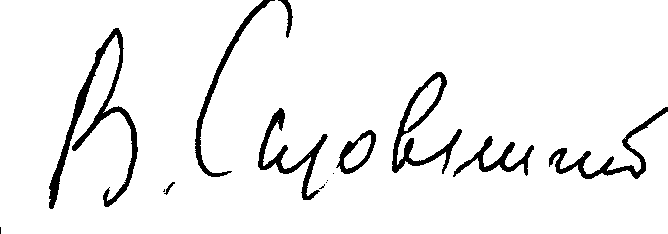 В. Садовничий